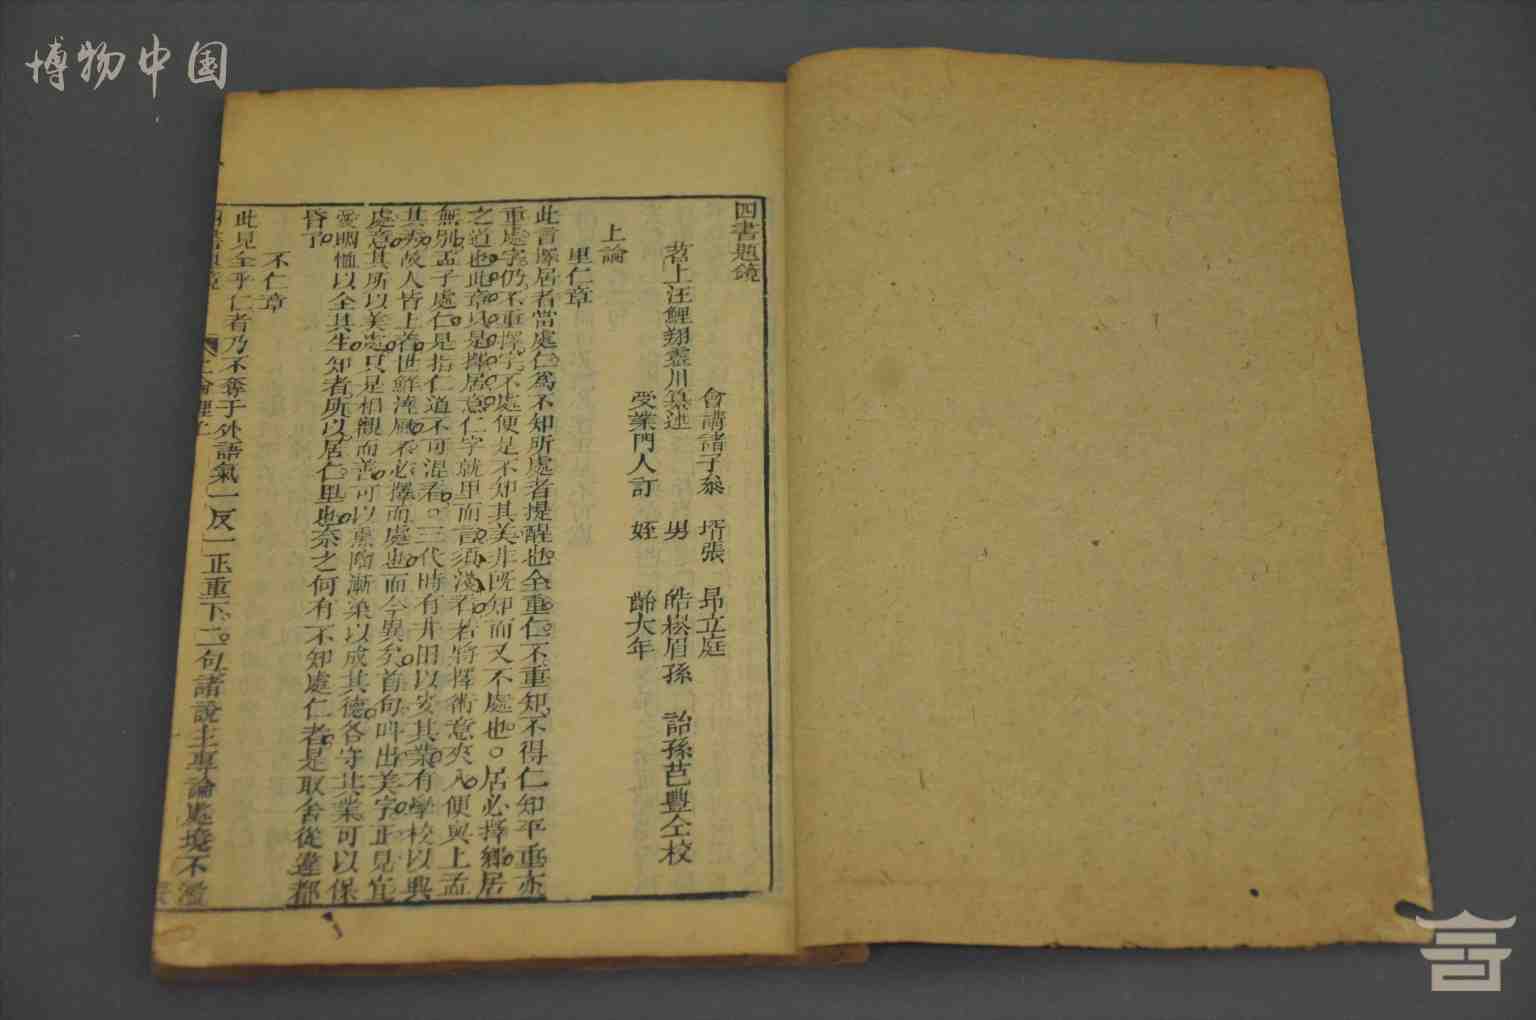 博物中国
四書題鏡
會講諸子叅 壻張 昻立庭
苕上汪鯉翔靈川纂述 男 皓崧眉孫 詒孫芑豐仝校
受業門人訂 姪 齡大年
上論
里仁章
此言擇居者當處仁爲不知所處者提醒也全重仁不重知不得仁知平重亦
重處字仍不重擇字不處便是不知其美非既知而又不處也○居必擇鄉居
之道也此章只是擇居意仁字就里而言須淺看若將擇術意夾入便與上孟
無別孟子處仁是指仁道不可混看三代時有井田以安其業有學校以興
其秀故人皆上善世鮮澆風不必擇而處也而今異矣首句叫出美字正見宜
處意其所以美處只是相觀而善可以熏陶漸染以成其德各守其業可以保
愛賙恤以全其生知者所以居仁里也奈之何有不知處仁者是取舍從違都
昏了
不仁章
此見全乎仁者乃不奪于外語氣一反一正重下二句諸說主專論處境不濫